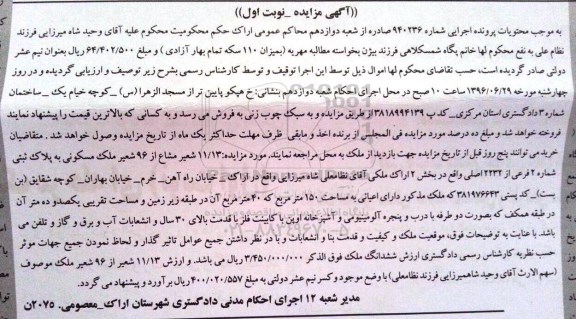 ((آگهی مزایده _نوبت اول))
به موجب محتویات پرونده اجرایی شماره ۹۴۰۲۳۶ صادره از شعبه دوازدهم محاکم عمومی اراک حکم محکومیت محکوم علیه آقای وحید شاه میرزایی فرزند
نظام علی به نفع محکوم لها خانم پگاه شمسکلاهی فرزند بیژن بخواسته مطالبه مهریه (بمیزان ۱۱۰ سکه تمام بهار آزادی) و مبلغ ۶۴/۴۰۲/۵۰۰ ریال بعنوان نیم عشر
دولتی صادر گردیده است، حسب تقاضای محکوم لها اموال ذیل توسط این اجرا توقیف و توسط کارشناس رسمی بشرح زیر توصیف و ارزیابی گردیده و در روز
چهارشنبه مورخه ۱۳۹۶/۰۶/۲۹ ساعت ۱۰ صبح در محل اجرای احکام شعبه دوازدهم بنشانی: خ هپکو پایین تر از مسجد الزهرا (س) _کوچه خیام یک _ساختمان
شماره ۳ دادگستری استان مرکزی_ کد پ ۳۸۱۸۹۹۴۱۳۹ از طریق مزایده و به سبک چوب زنی به فروش می رسد و به کسانی که بالاترین قیمت را پیشنهاد نمایند
فروخته خواهد شد و مبلغ ده درصد مورد مزایده فی المجلس از برنده اخذ و مابقی ظرف مهلت حداکثر یک ماه از تاریخ مزایده وصول خواهد شد. متقاضیان
خرید می توانند پنج روز قبل از تاریخ مزایده جهت بازدید از ملک به محل مراجعه نمایند. مورد مزایده: ۱۱/۱۳ شعیر مشاع از ۹۶ شعیر ملک مسکونی به پلاک ثبتی
شماره ۲ فرعی از ۲۲۳۲ اصلی واقع در بخش ۲ اراک ملکی آقای نظامعلی شاه میرزایی واقع در اراک _ خیابان راه آهن_ خرم_ خیابان بهاران_ کوچه شقایق (بن
بست)_ کد پستی ۳۸۱۹۷۶۶۴۳ که ملک مذکور دارای اعیانی به مساحت ۱۵۰ متر مربع که ۴۰ متر مربع آن در طبقه زیر زمین و مساحت تقریبی یکصدو ده متر آن
در طبقه همکف که بصورت دو طرفه با درب و پنجره آلومینیومی و آشپزخانه اوپن با کابینت فلز با قدمت بالای ۳۰ سال و انشعابات آب و برق و گاز و تلفن می
باشد. با عنایت به توضیحات فوق، موقعیت ملک و کیفیت و قدمت بنا و انشعابات و با در نظر داشتن جمیع عوامل تاثیر گذار و لحاظ نمودن جمیع جهات موثر
حسب نظریه کارشناس رسمی دادگستری ارزش ششدانگ ملک فوق الذکر ۳/۴۵۰/۰۰۰/۰۰۰ ریال می باشد. و ارزش ۱۱/۱۳ شعیر از ۹۶ شعیر ملک موصوف
(سهم الارث آقای وحید شاهمیرزایی فرزند نظامعلی) با وضع موجود و کسر نیم عشر دولتی به مبلغ ۴۰۰/۰۲۰/۵۵۷ ریال برآورد و پیشنهاد می گردد.
مدیر شعبه ۱۲ اجرای احکام مدنی دادگستری شهرستان اراک_معصومی. ۲۰۷۵ن